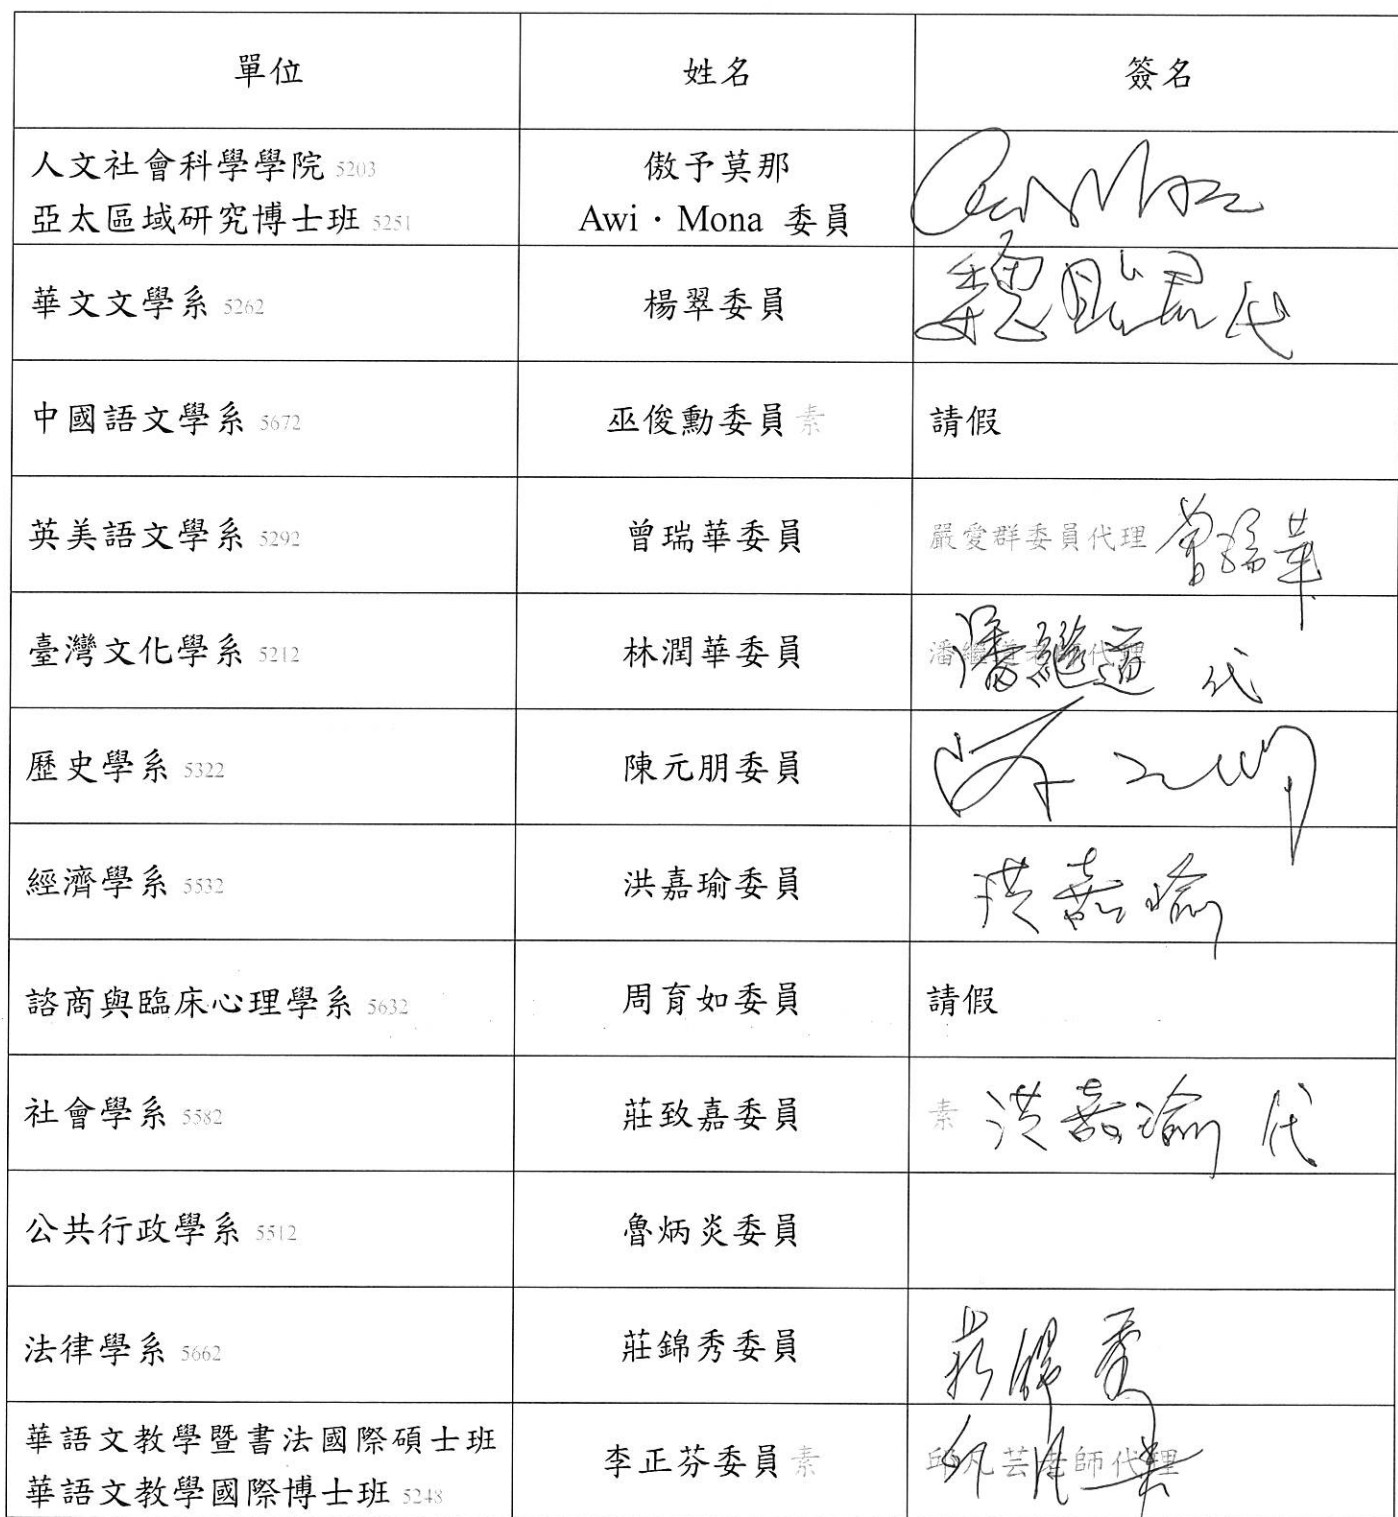 單位 姓名 簽名
人文社會科學學院 5203
亞太區域研究博士班 5251
傲予莫那
Awi・Mona 委員
華文文學系 5262 楊翠委員 魏貽君代
中國語文學系 5672 巫俊勳委員 素 請假
英美語文學系 5292 曾瑞華委員 嚴愛群委員代理 曾瑞華
臺灣文化學系 5212 林潤華委員 潘繼道老師代理 潘繼道 代
歷史學系 5322 陳元朋委員 陳元朋
經濟學系 5532 洪嘉瑜委員 洪嘉瑜
諮商與臨床心理學系 5632 周育如委員 請假
社會學系 5582 莊致嘉委員 素 洪嘉瑜 代
公共行政學系 5512 魯炳炎委員
法律學系 5662 莊錦秀委員 莊錦秀
華語文教學暨書法國際碩士班
華語文教學國際博士班 5248
李正芬委員 素
邱凡芸老師代理 邱凡芸